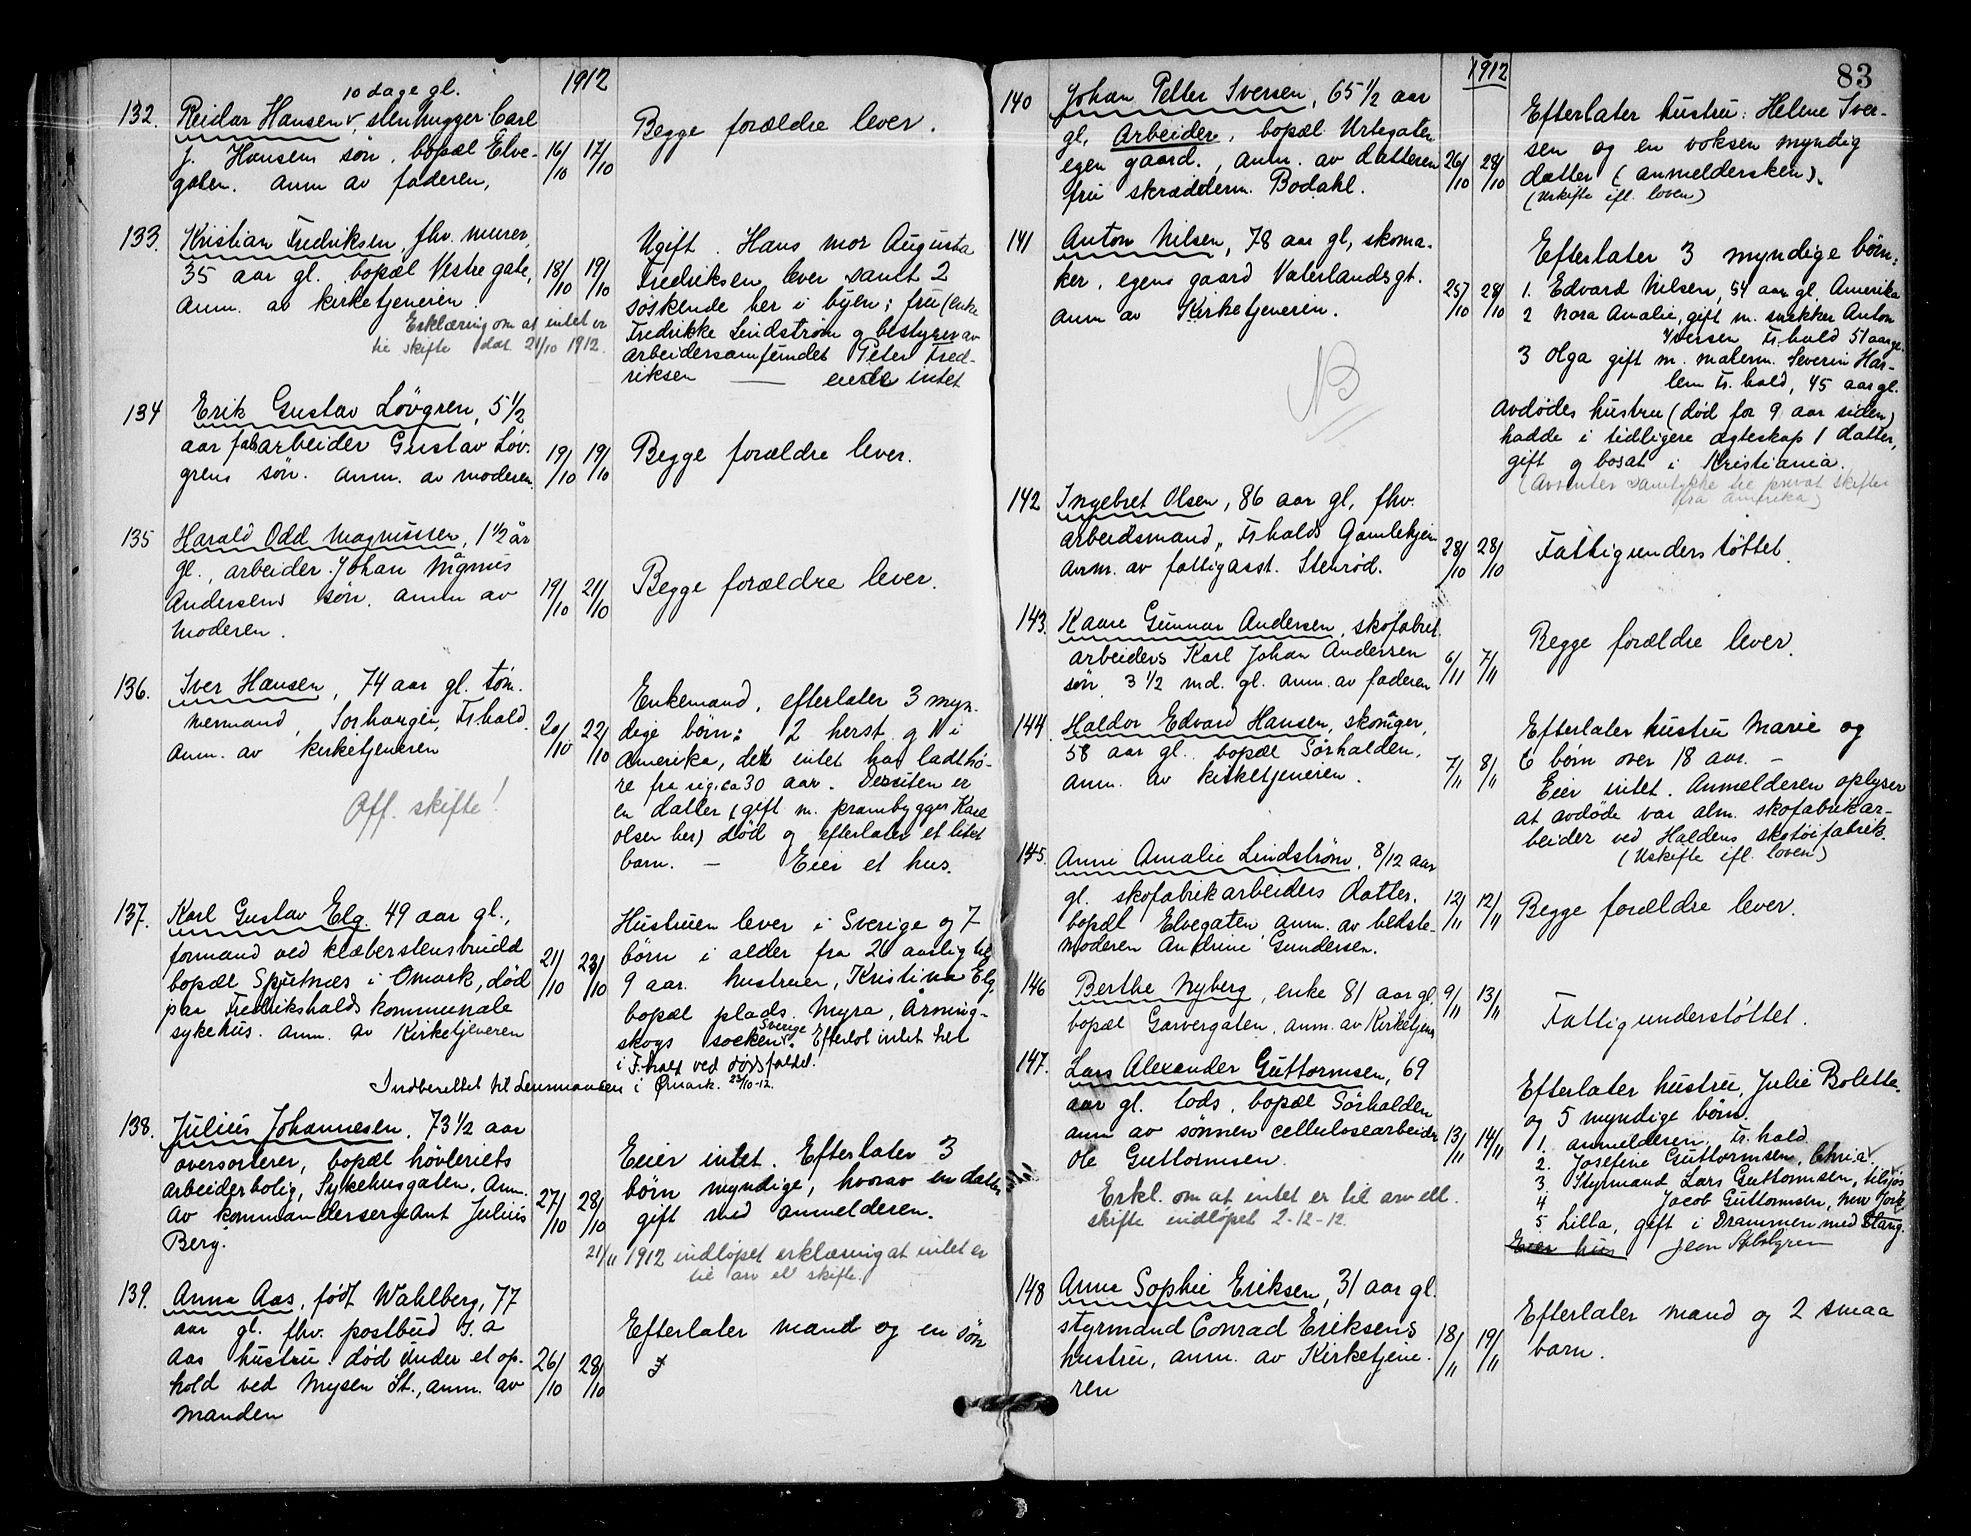 1912
10 dage gl.
132. Reidar Hansen, stenhugger Carl
J. Hansens søn, bopæl Elve-
gaten. Anm av faderen,
16/10 17/10
Begge forældre lever.
133. Kristian Fredriksen, fhv. murer,
35 aar gl. bopæl Vestre gate,
Anm. av kirketjeneren.
18/10 19/10
Erklæring om at intet er
til skifte dat. 21/10 1912.
Ugift. Hans mor Augusta
Fredriksen lever samt 2
søskende her i byen; fru (enke
Fredrikke Lindstrøm og bestyrer av
arbeidersamfundet Peter Fred-
riksen — eiede intet
134 Erik Gustav Løvgren, 5 1/2
aar fabarbeider Gustav Løv-
grens søn. Anm. av moderen.
19/10 19/10
Begge forældre lever.
135 Harald Odd Magnussen, 1 1/2 år
gl., arbeider Johan Magnus
Andersens søn. Anm av
Moderen.
19/10 21/10
Begge forældre lever.
136. Iver Hansen, 74 aar gl. tøm-
mermand, Sorhaugen, Fr.hald.
Anm. av kirketjeneren
20/10 22/10
Off. skifte!
Enkemand, efterlater 3 myn-
dige børn: 2 herst. og 1 i
Amerika, der intet har ladt hø-
re fra sig i ca 30 aar. Dessuten er
en datter (gift m. prambygger Karl
Olsen her) død og efterlater et litet
barn. — Eier et hus.
137. Karl Gustav Elg. 49 aar gl.,
formand ved klæberstensbrudd
bopæl Spjutnæs i Ømark, død
paa Fredrikshalds kommunale
sykehus. Anm. av Kirketjeneren
21/10 23/10
Hustruen lever i Sverige og 7
børn i alder fra 26 aarlig til
9 aar. hustruen, Kristina Elg,
bopæl plads Myra, Årning-
skogs socken, Sverige. Efterlot intet her
i F.hald ved dødsfaldet.
Indberettet til Lensmanden i Ømark. 23/10-12.
138. Julius Johannesen, 73 1/2 aar
oversorterer, bopæl høvleriets
arbeiderbolig, Sykehusgaten, Anm.
av kommandersergeant Julius
Berg.
27/10 28/10
Eier intet. Efterlater 3
børn myndige, hvorav en datter
gift med anmelderen.
21/11 1912 indløpet erklæring at intet er
til arv el skifte.
139. Anna Aas, født Wahlberg, 77
aar gl. fhv. postbud J. A
Aas hustru. død under et op-
hold ved Mysen St., anm. av
manden
26/10 28/10
Efterlater mand og en søn
83
1912
140 Johan Petter Iversen, 65 1/2 aar
gl. Arbeider, bopæl Urtegaten
egen gaard., anm. av datteren
fru skrædderm. Bodahl.
26/10 28/10
Efterlater hustru: Helene Iver-
sen og en voksen myndig
datter (anmeldersken).
(Uskifte ifl. loven)
141 Anton Nilsen, 78 aar gl, skoma-
ker, egen gaard Vaterlandsgt.
Anm av Kirketjeneren.
25/10 28/10
NB
Efterlater 3 myndige børn:
1. Edvard Nilsen, 54 aar gl. Amerika
2 Nora Amalie, gift m. snekker Anton
Iversen Fr.hald 51 aar gl.
3 Olga gift m. malerm. Severin Har-
lem Fr. hald, 45 aar gl.
Avdødes hustru (død for 9 aar siden)
hadde i tidligere ægteskap 1 datter,
gift og bosat i Kristiania.
(Avventer samtykke til privat skifte
fra Amerika)
142 Ingebret Olsen, 86 aar gl, fhv.
arbeidsmand, Fr.halds Gamlehjem
Anm. av fattigasst. Stenrød.
28/10 28/10
Fattigunderstøttet
143. Kaare Gunnar Andersen, skofabrik
arbeiders Karl Johan Andersen
søn, 3 1/2 md. gl. anm. av faderen
6/11 7/11
Begge forældre lever.
144 Haldor Edvard Hansen, skomager,
58 aar gl. bopæl Sørhalden,
Anm. av kirketjeneren.
7/11 8/11
Efterlater hustru Marie og
6 børn over 18 aar. —
Eier intet. Anmelderen oplyser
at avdøde var alm. skofabrikar-
beider ved Haldens skotøifabrik.
(Uskifte ifl. loven)
145. Anni Amalie Lindstrøm, 8/12 aar
gl. skofabrikarbeiders datter.
bopæl Elvegaten, anm. av bedste-
moderen Andrine Gundersen.
12/11 12/11
Begge forældre lever.
146 Berthe Nyberg, enke 81 aar gl.
bopæl Garvergaten, anm. av Kirketjen.
9/11 13/11
Fattigunderstøttet.
147. Lars Alexander Guttormsen, 69
aar gl. lods, bopæl Sørhalden
anm av sønnen cellulosearbeider
Ole Guttormsen.
13/11 14/11
Erkl. om at intet er til arv ell.
skifte indløpet 2-12-12.
Efterlater hustru, Julie Bolette
og 5 myndige børn.
1. anmelderen, Fr.hald
2. Josefine Guttormsen, Chria
3 Styrmand Lars Guttormsen, tilsjøs
4 Jacob Guttormsen, New York
5 Lilla, gift i Drammen med Stang.
Eier hus
148 Anna Sophie Eriksen, 31 aar gl.
styrmand Conrad Eriksens
hustru, anm. av Kirketjene-
ren
18/11 19/11
Efterlater mand og 2 smaa
barn.